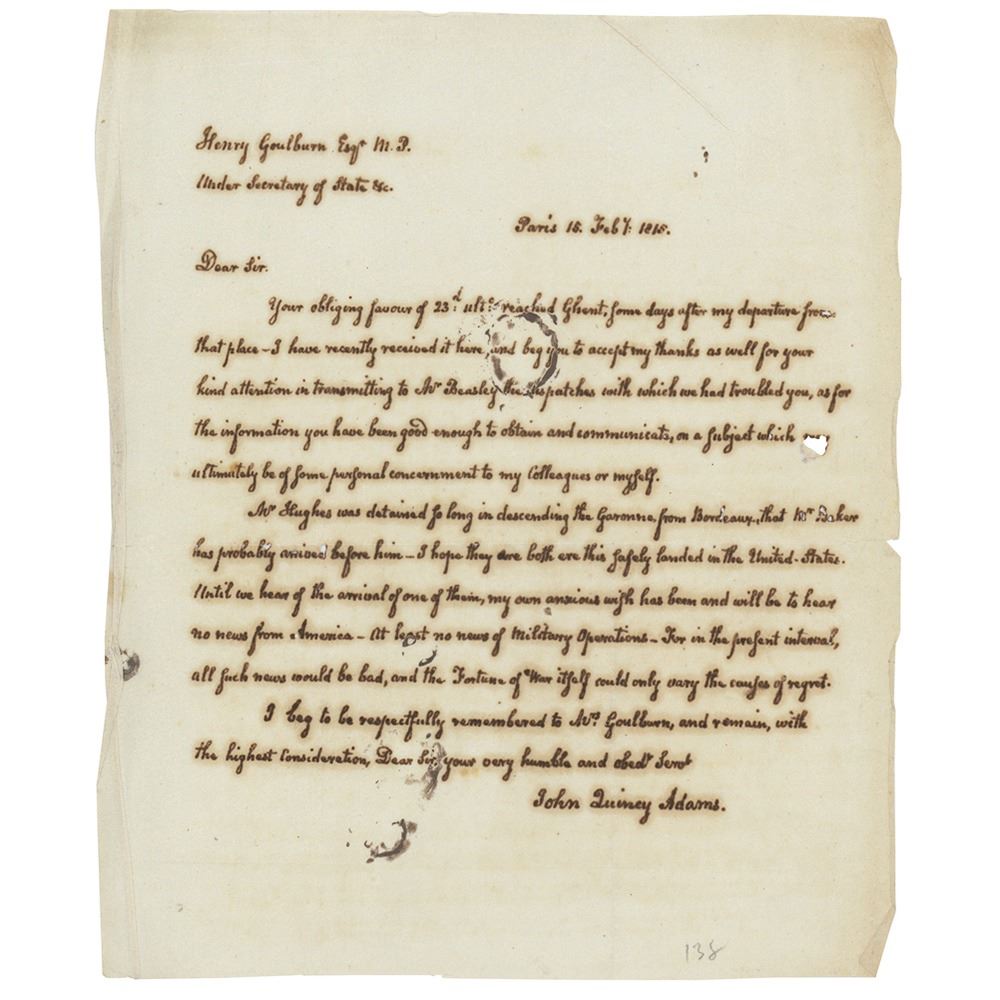 Henry Goulburn Esqr. M.P.
Under Secretary of State &c.
Paris 15. Feby: 1815.
Dear Sir.
Your obliging favour of 23.d ulto: reached Ghent, some days after my departure from
that place - I have recently received it here, and beg you to accept my thanks as well for your
kind attention in transmitting to Mr Beasley the dispatches with which we had troubled you, as for
the information you have been good enough to obtain and communicate, on a subject which
ultimately be of some personal concernment to my Colleagues or myself.
Mr Hughes was detained so long in descending the Garonne, from Bordeaux, that Mr Baker
has probably arrived before him - I hope they are both ere this safely landed in the United-States.
Until we hear of the arrival of one of them, my own anxious wish has been and will be to hear
no news from America - At least no news of Military Operations - For in the present interval,
all such news would be bad, and the Fortune of War itself could only vary the causes of regret.
I beg to be respectfully remembered to Mrs. Goulburn, and remain, with
the highest Consideration, Dear Sir, your very humble and obedt Servt
John Quincy Adams.
138